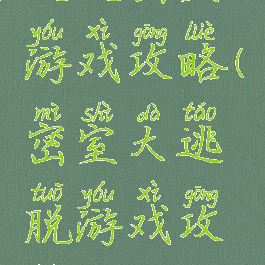 yóu xì gōng lüè
游戏攻略(
mì shì dà táo
密室大逃
tuō yóu xì gōng
脱游戏攻